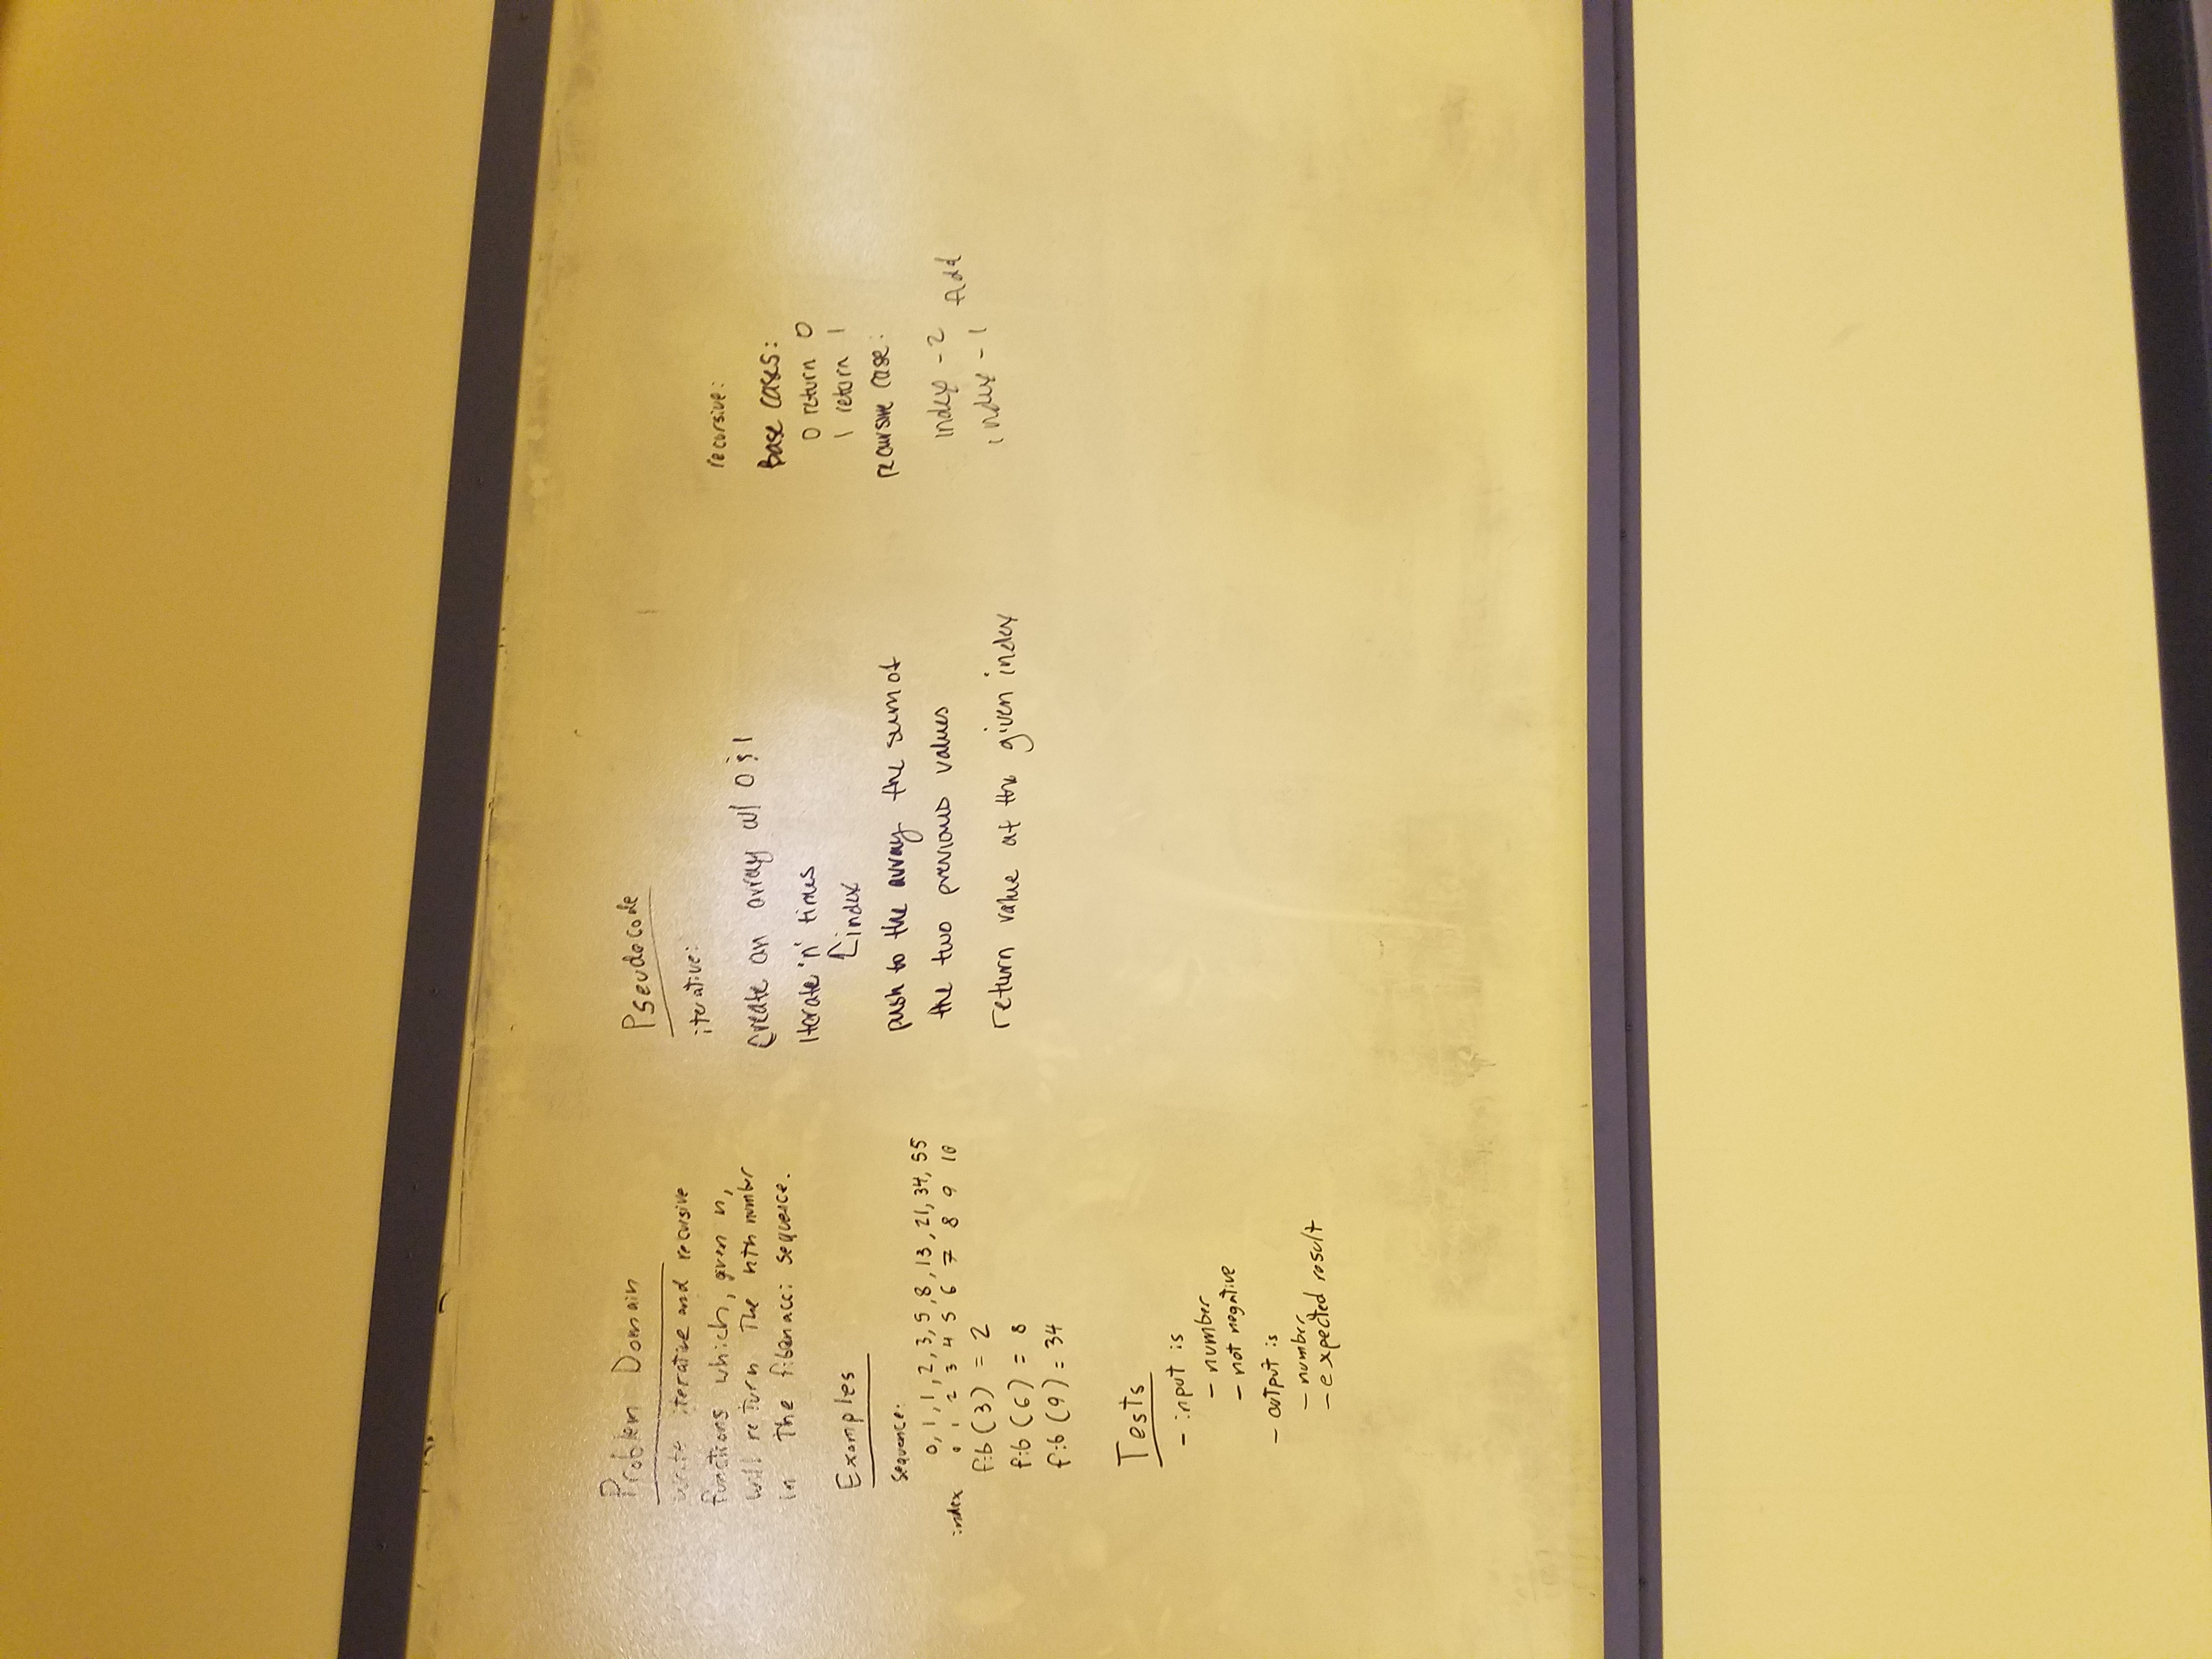 Problem Domain
Write iterative and recursive
functions which, given n,
will return The nth number
in The fibonacci sequence.
Examples
Sequence:
0, 1, 1, 2, 3, 5, 8, 13, 21, 34, 55
index 0 1 2 3 4 5 6 7 8 9 10
fib (3) = 2
fib (6) = 8
fib (9) = 34
Tests
- input is
- number
- not negative
- output is
- number
- expected result
Pseudocode
iterative:
Create an array w/ 0 & 1
Iterate 'n' times
↑index
push to the array the sum of
the two previous values
return value at the given index
recursive:
Base cases:
0 return 0
1 return 1
recursive case:
index - 2
index - 1
Add